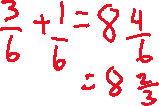 3/6 + 1/6 = 8 4/6
= 8 2/3